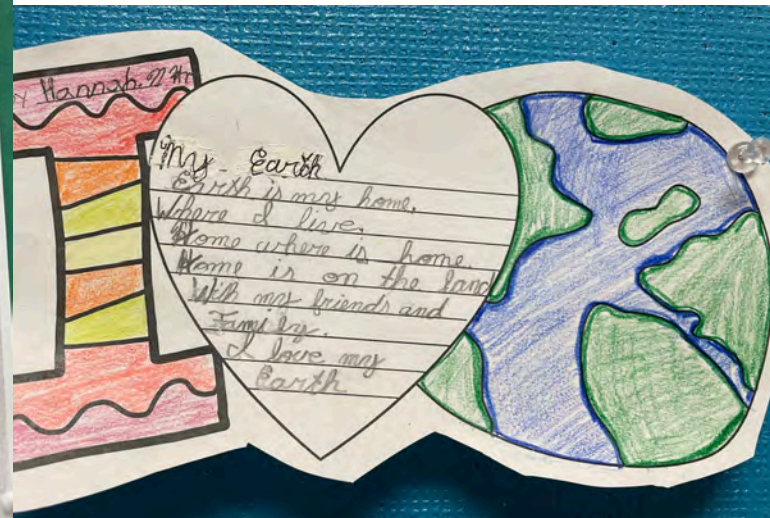 Hannah.
My Earth
Earth is my home,
Where I live,
Home where is home.
Home is on the land
With my friends and
Family.
I love my
Earth